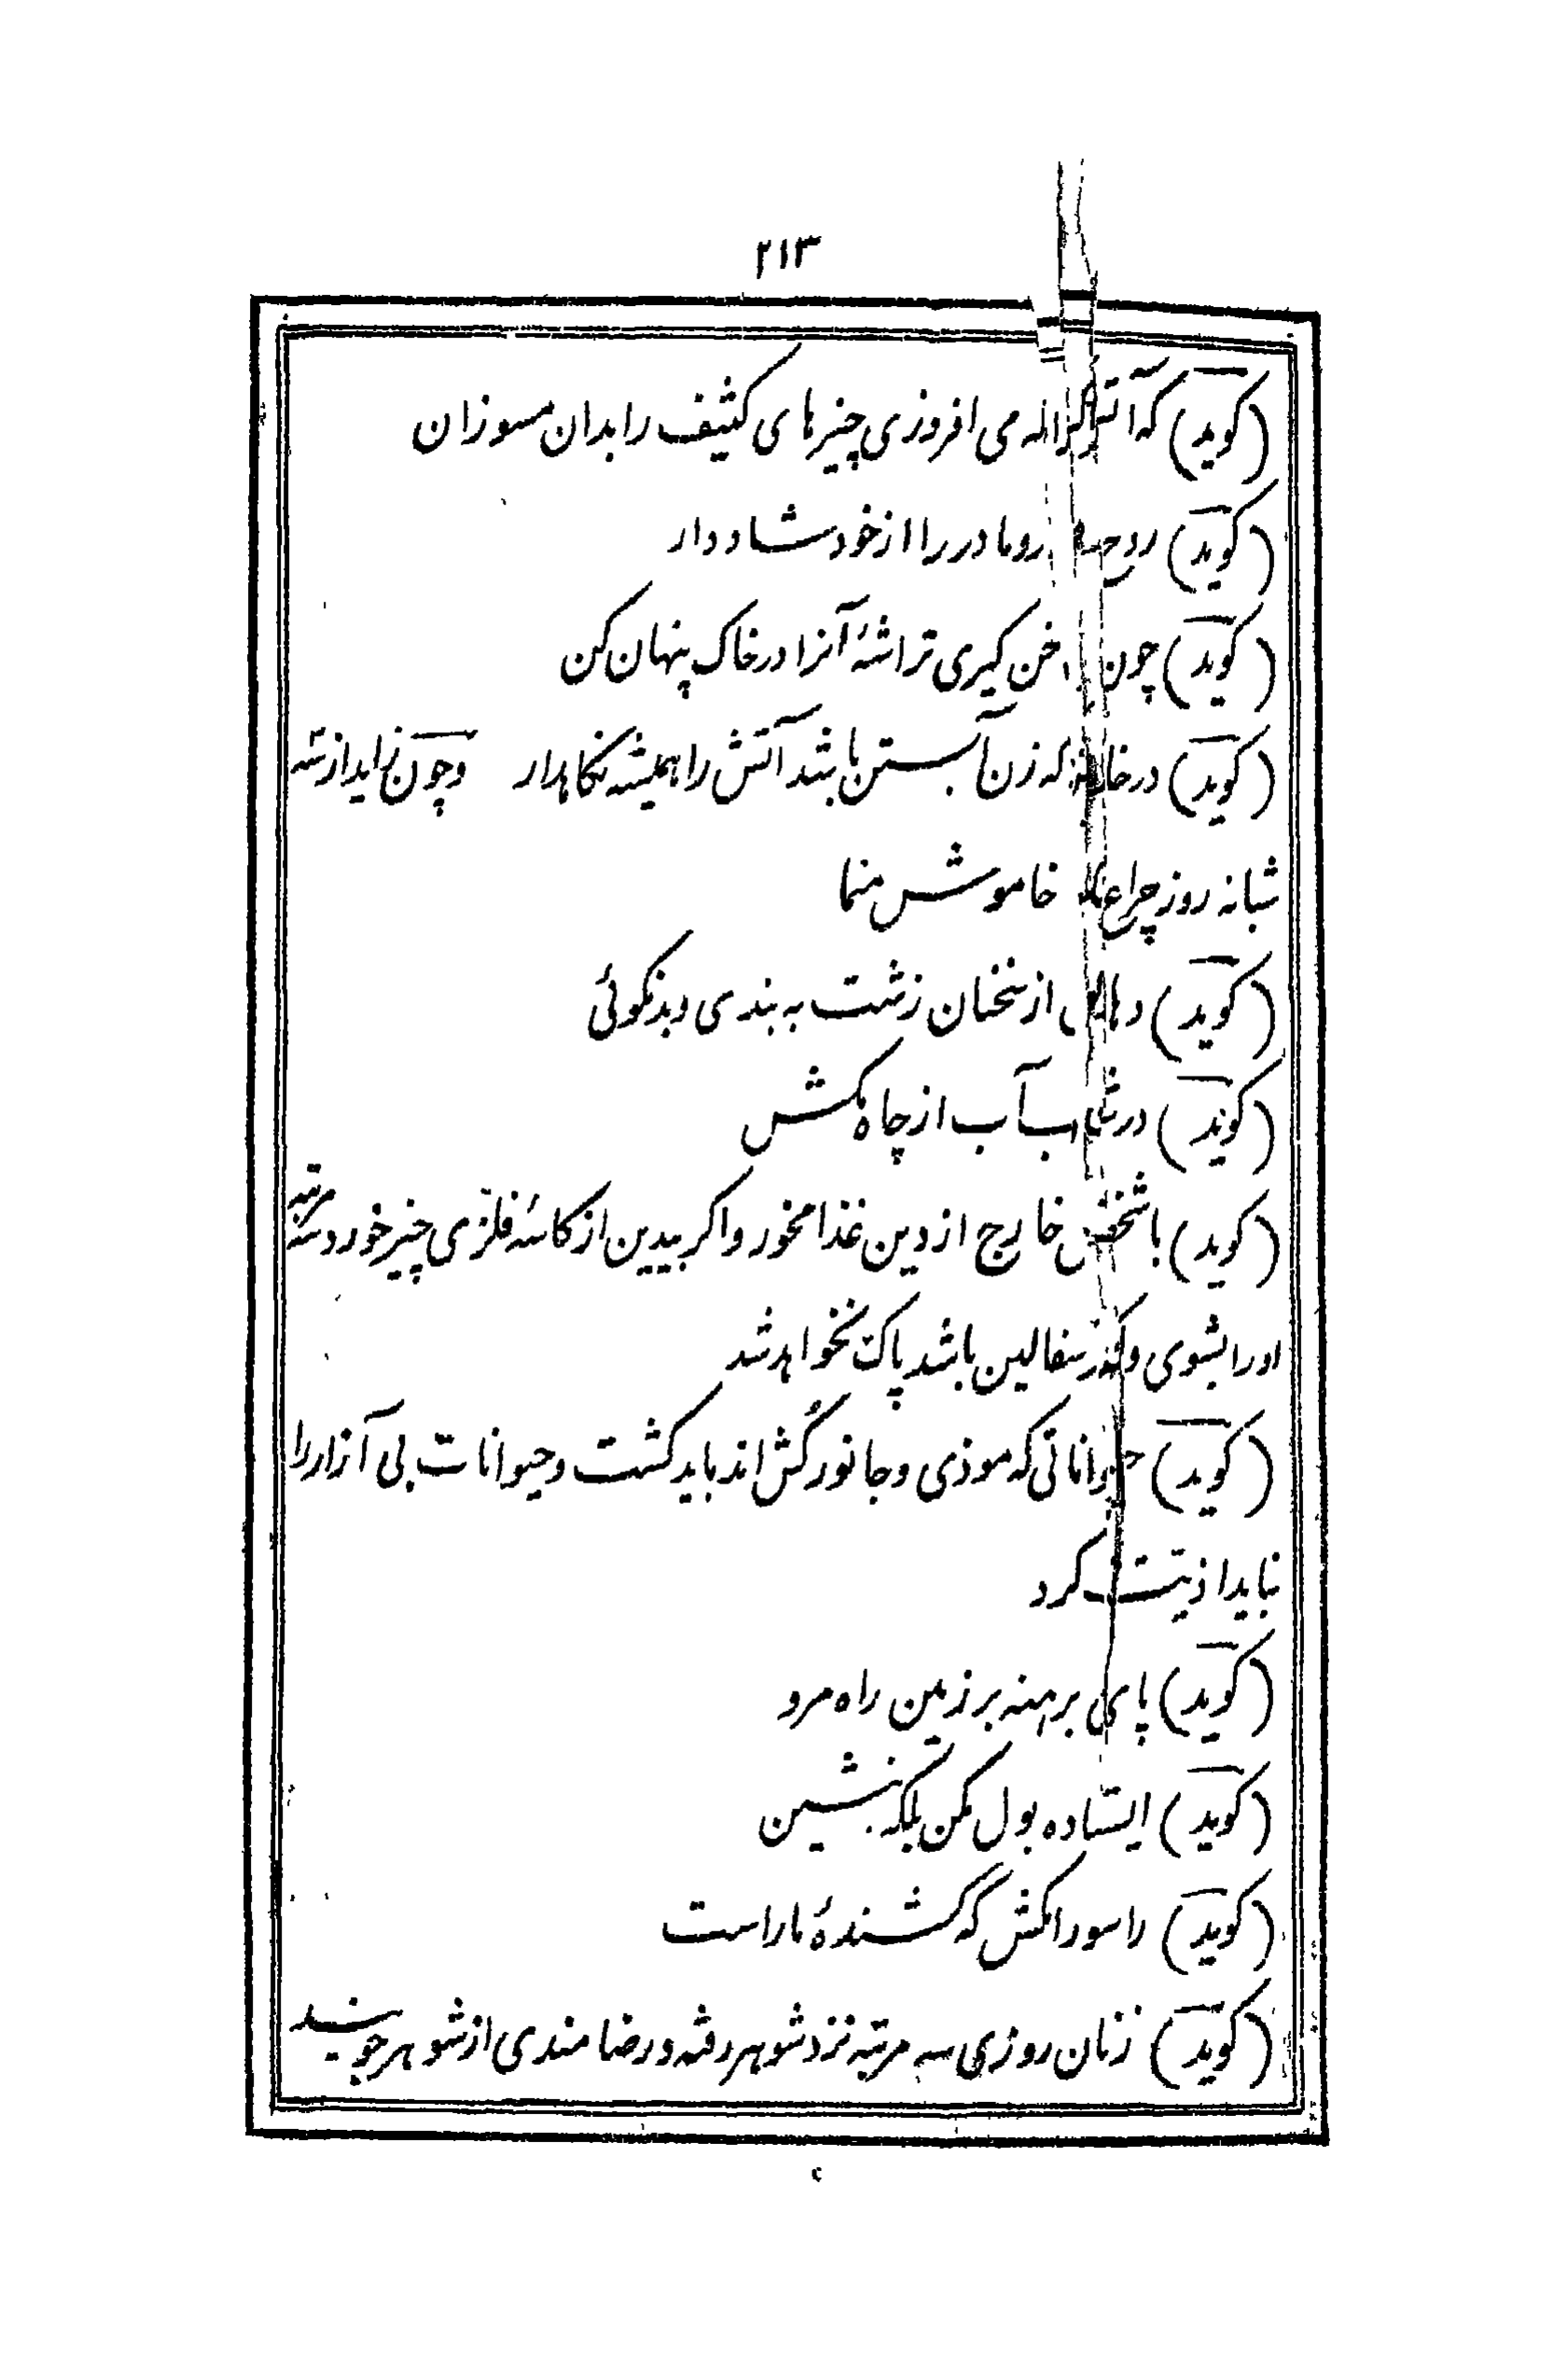 ۲۱۳
(کوید) که می افروزی چیزهای کثیف را بدان مسوزان
(کوید) مادر را از خود شاد دار
(کوید) چون کیری تراشهٔ آنرا در خاک پنهان کن
(کوید) در که زن آبستن باشد آتش را همیشه نکاهدار وچون زاید از سه
شبانه روز چراغ خاموش منما
(کوید) از سخنان زشت به بندی وبد نکوئی
(کوید) در شب آب از چاه مکش
(کوید) با شخص خارج از دین غذا مخور واکر بیدین از کاسهٔ فلزی چیز خورد سه مرتبه
اورا بشوی و سفالین باشد پاک نخواهد شد
(کوید) حیواناتی که موذی وجانور کُش اند باید کشت وحیوانات بی آزار را
نباید اذیت کرد
(کوید) پای برهنه بر زمین راه مرو
(کوید) ایستاده بول مکن بلکه بنشین
(کوید) راسو را مکش که کشندهٔ مار است
(کوید) زنان روزی سه مرتبه نزد شوهر رفته ورضامندی از شوهر جویند